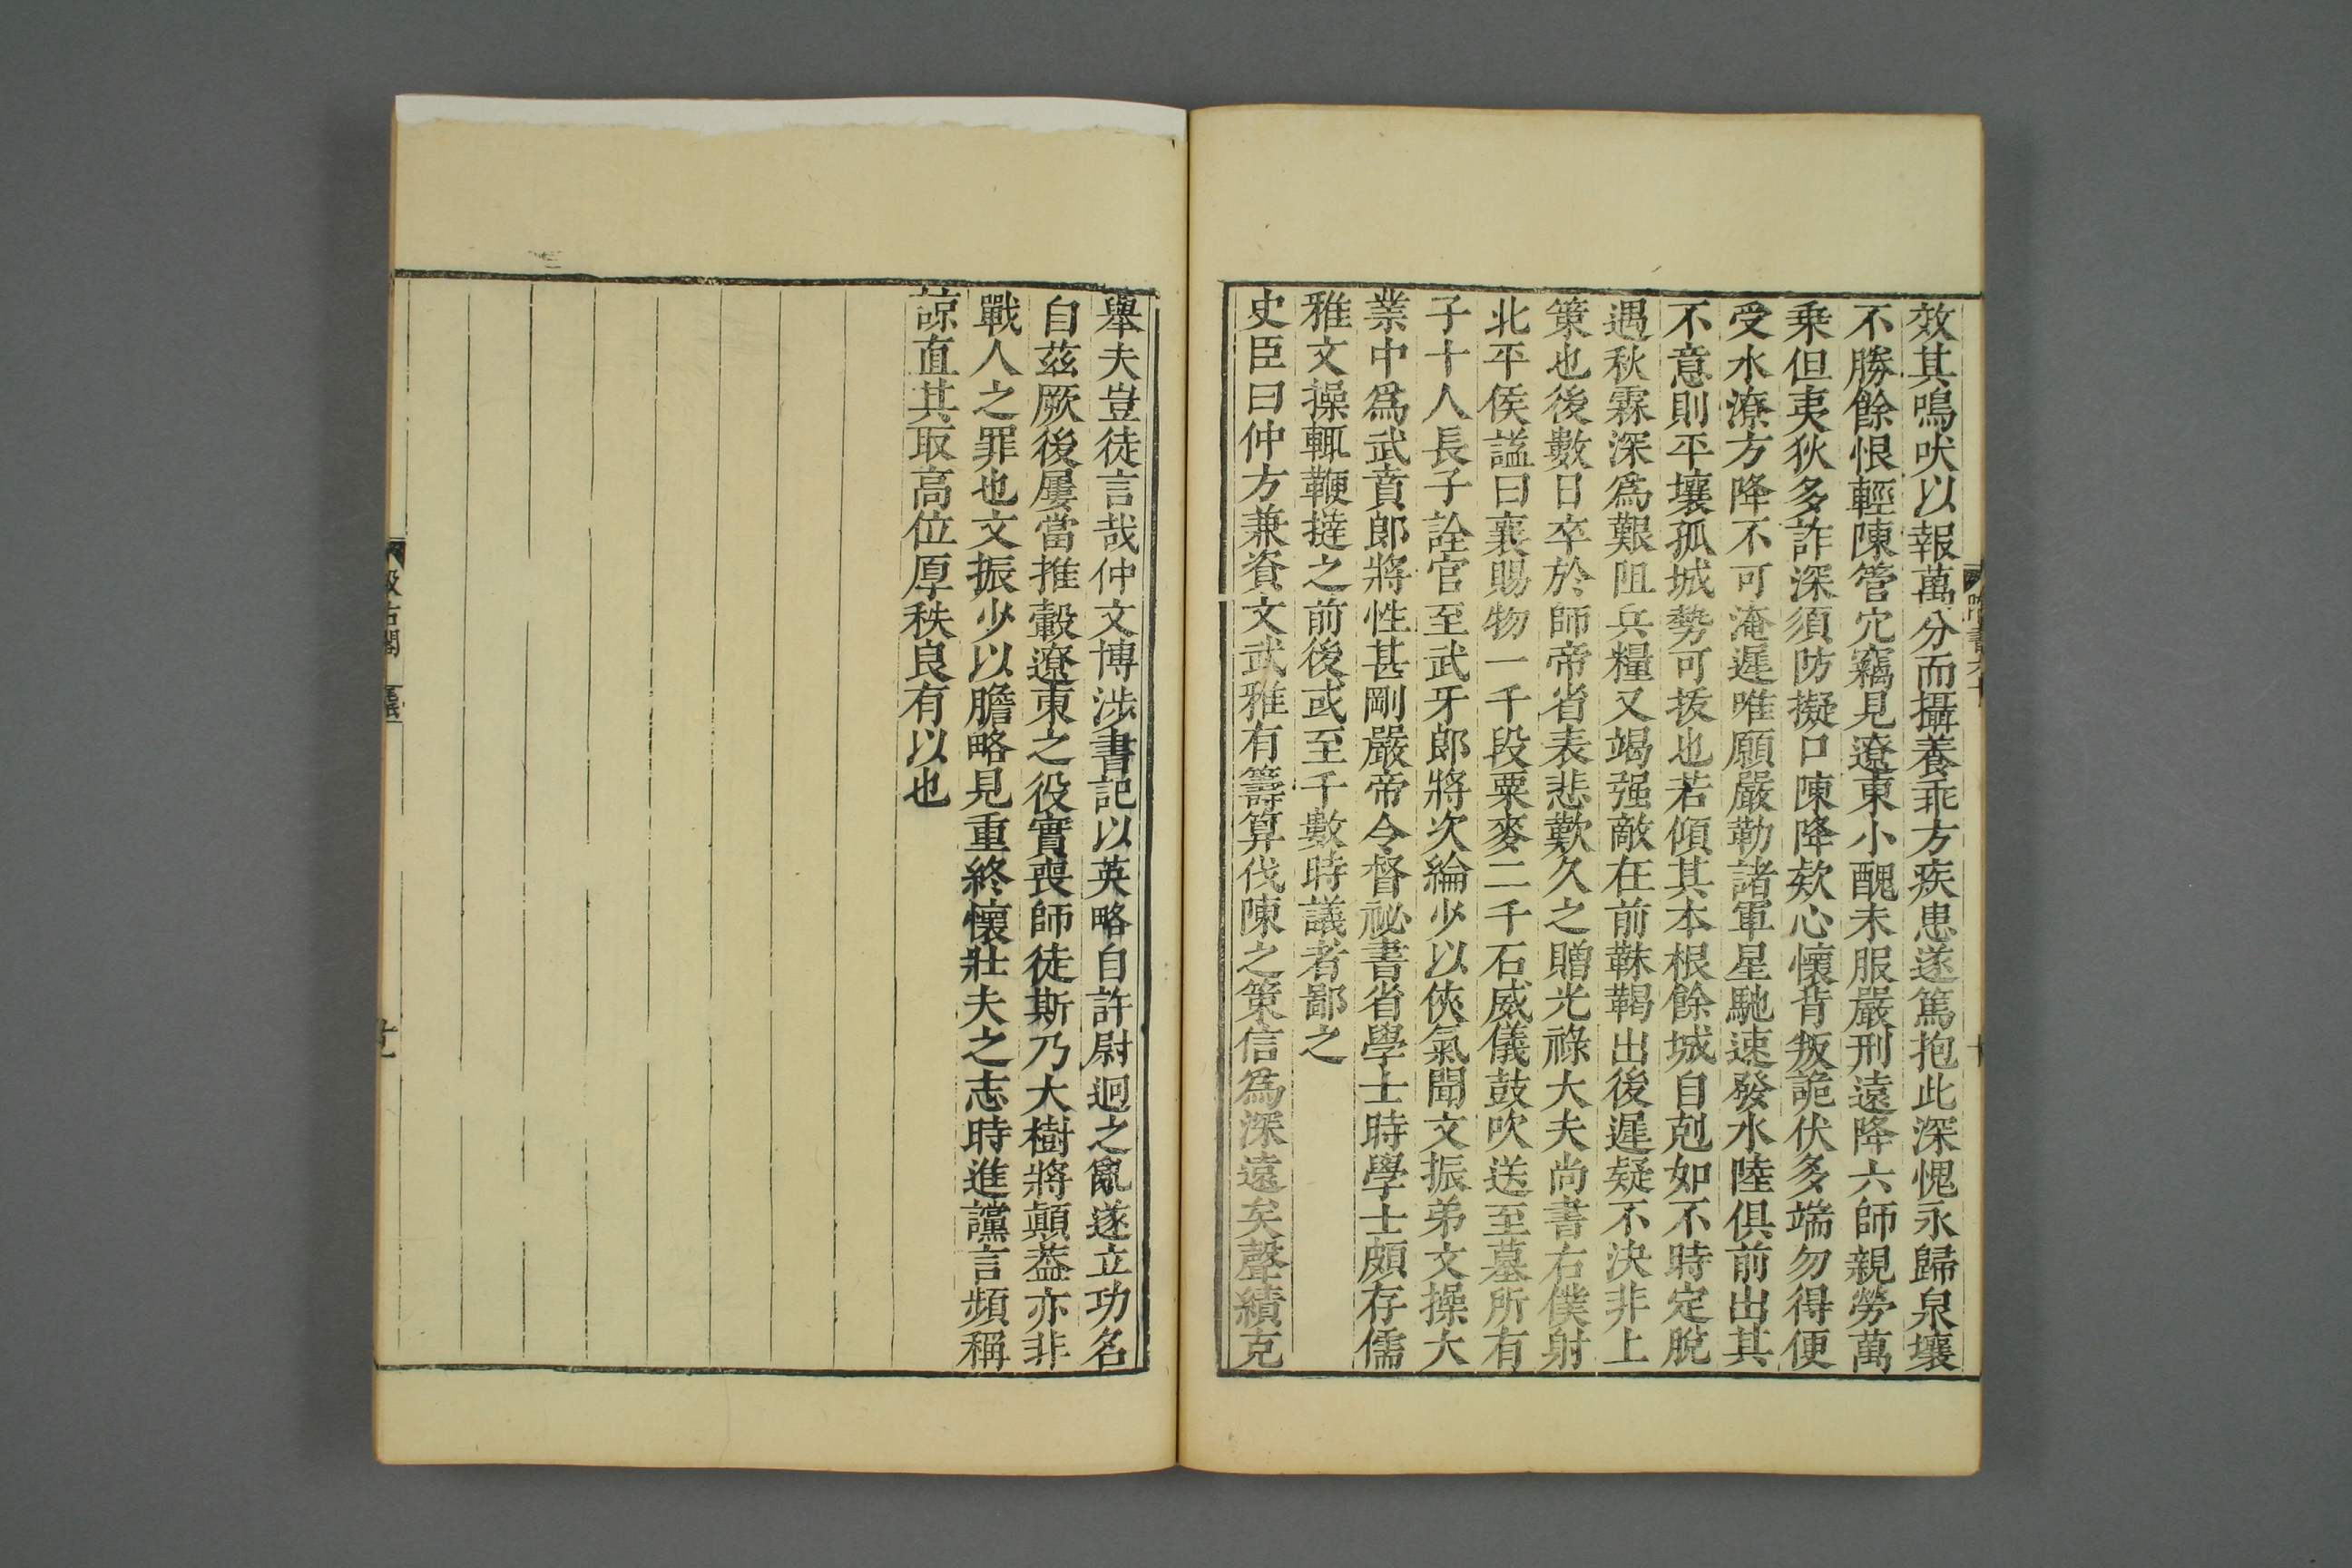 效其鳴吠以報萬分而攝養乖方疾患遂篤抱此深愧永歸泉壤
不勝餘恨輕陳管穴竊見遼東小醜未服嚴刑遠降六師親勞萬
乗但夷狄多詐深須防擬口陳降欵心懷背叛詭伏多端勿得便
受水潦方降不可淹遲唯願嚴勒諸軍星馳速發水陸俱前出其
不意則平壤孤城勢可拔也若傾其本根餘城自剋如不時定脫
遇秋霖深爲艱阻兵糧又竭强敵在前靺鞨出後遲疑不決非上
策也後數日卒於師帝省表悲歎久之贈光祿大夫尚書右僕射
北平侯謚曰襄賜物一千段粟麥二千石威儀鼓吹送至墓所有
子十人長子詮官至武牙郎將次綸少以俠氣聞文振弟文操大
業中爲武賁郎將性甚剛嚴帝令督祕書省學士時學士頗存儒
雅文操輒鞭撻之前後或至千數時議者鄙之
史臣曰仲方兼資文武雅有籌算伐陳之策信爲深遠矣聲績克
舉夫豈徒言哉仲文博涉書記以英略自許尉迥之亂遂立功名
自茲厥後屢當推轂遼東之役實喪師徒斯乃大樹將顛葢亦非
戰人之罪也文振少以膽略見重終懷壯夫之志時進讜言頻稱
諒直其取高位厚秩良有以也